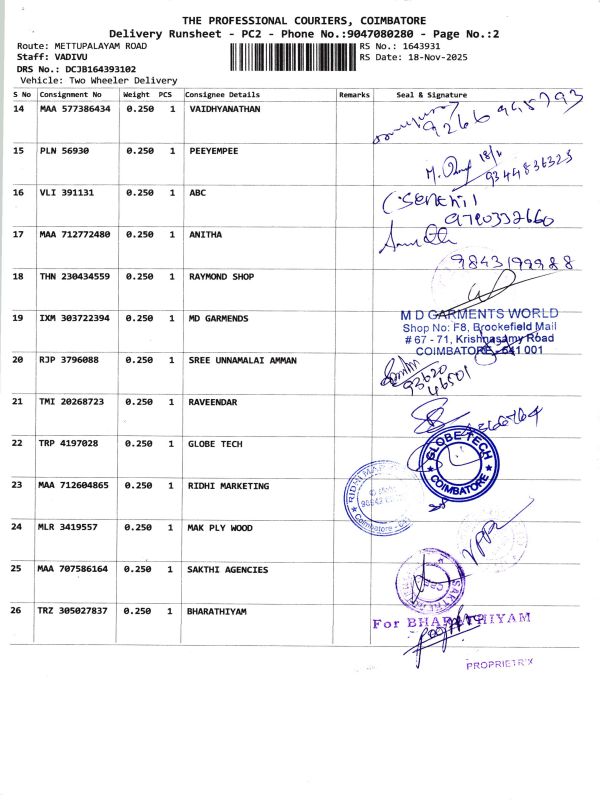 THE PROFESSIONAL COURIERS, COIMBATORE
Delivery Runsheet - PC2 - Phone No.:9047080280 - Page No.:2
Route: METTUPALAYAM ROAD
RS No.: 1643931
Staff: VADIVU
RS Date: 18-Nov-2025
DRS No.: DCJB164393102
Vehicle: Two Wheeler Delivery
S No Consignment No Weight PCS Consignee Details Remarks Seal & Signature
14 MAA 577386434 0.250 1 VAIDHYANATHAN
15 PLN 56930 0.250 1 PEEYEMPEE
9344836323
16 VLI 391131 0.250 1 ABC
SENTHIL
9790332660
17 MAA 712772480 0.250 1 ANITHA
9843199988
18 THN 230434559 0.250 1 RAYMOND SHOP
19 IXM 303722394 0.250 1 MD GARMENDS
M D GARMENTS WORLD
Shop No: F8, Brookefield Mall
# 67 - 71, Krishnasamy Road
COIMBATORE - 641 001
20 RJP 3796088 0.250 1 SREE UNNAMALAI AMMAN
93620
46501
21 TMI 20268723 0.250 1 RAVEENDAR
22 TRP 4197028 0.250 1 GLOBE TECH
GLOBE TECH
COIMBATORE
23 MAA 712604865 0.250 1 RIDHI MARKETING
24 MLR 3419557 0.250 1 MAK PLY WOOD
25 MAA 707586164 0.250 1 SAKTHI AGENCIES
26 TRZ 305027837 0.250 1 BHARATHIYAM
For BHARATHIYAM
PROPRIETRIX